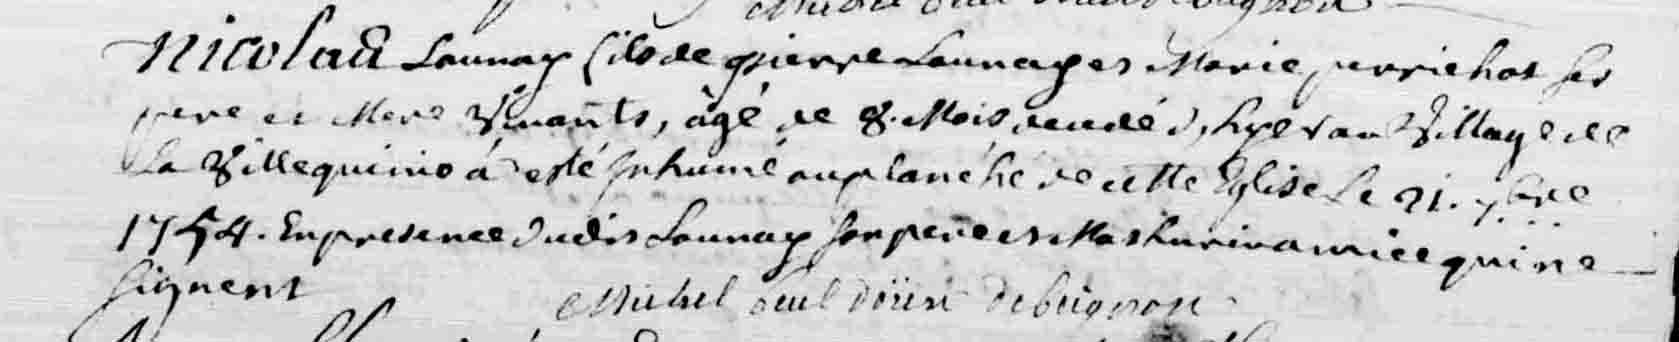 nicolas Launay fils de pierre Launay et Marie perrichot ses
pere et Mere Vivants, âgé de 8. Mois decedé d'hyer au Village de
La Ville quino á esté Inhumé au planché de cette Eglise Le 21. 7bre
1754. En presence dudit Launay son pere et Mathurin amice qui ne
signent
Michel doüen de beignon